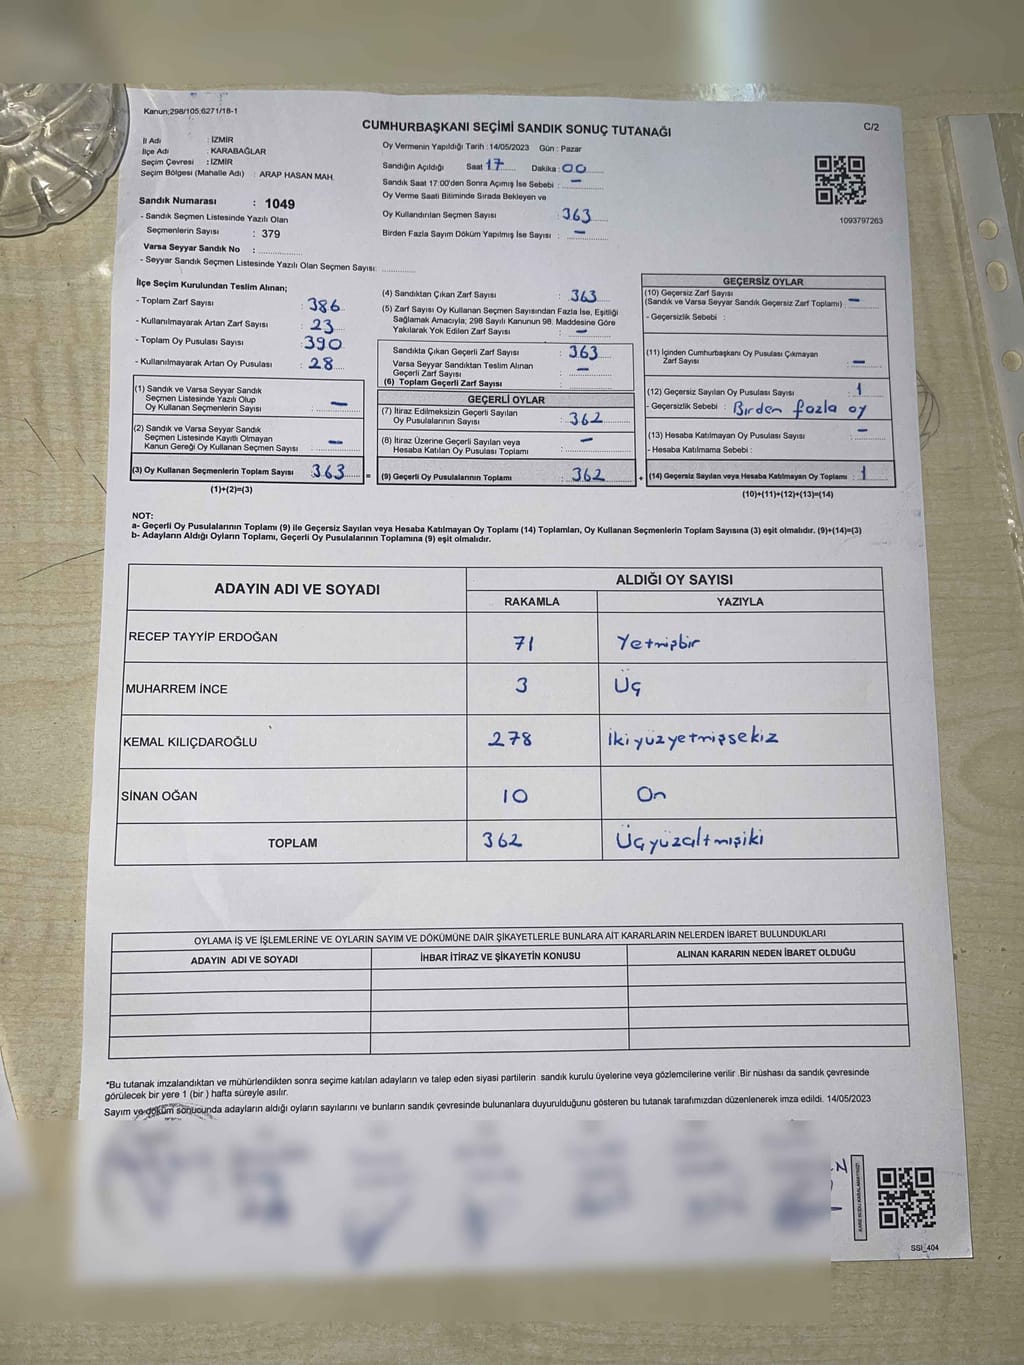 Kanun;298/105;6271/18-1
CUMHURBAŞKANI SEÇİMİ SANDIK SONUÇ TUTANAĞI
C/2
İl Adı : İZMİR
İlçe Adı : KARABAĞLAR
Seçim Çevresi : İZMİR
Seçim Bölgesi (Mahalle Adı) : ARAP HASAN MAH.
Sandık Numarası : 1049
- Sandık Seçmen Listesinde Yazılı Olan
Seçmenlerin Sayısı : 379
Varsa Seyyar Sandık No :
- Seyyar Sandık Seçmen Listesinde Yazılı Olan Seçmen Sayısı:
Oy Vermenin Yapıldığı Tarih : 14/05/2023 Gün : Pazar
Sandığın Açıldığı Saat 17 Dakika : 00
Sandık Saat 17:00'den Sonra Açımış İse Sebebi : -
Oy Verme Saati Bitiminde Sırada Bekleyen ve
Oy Kullandırılan Seçmen Sayısı : 363
Birden Fazla Sayım Döküm Yapılmış İse Sayısı : -
1093797263
İlçe Seçim Kurulundan Teslim Alınan;
- Toplam Zarf Sayısı : 386
- Kullanılmayarak Artan Zarf Sayısı : 23
- Toplam Oy Pusulası Sayısı : 390
- Kullanılmayarak Artan Oy Pusulası : 28
(1) Sandık ve Varsa Seyyar Sandık
Seçmen Listesinde Yazılı Olup
Oy Kullanan Seçmenlerin Sayısı : -
(2) Sandık ve Varsa Seyyar Sandık
Seçmen Listesinde Kayıtlı Olmayan
Kanun Gereği Oy Kullanan Seçmen Sayısı : -
(3) Oy Kullanan Seçmenlerin Toplam Sayısı : 363 =
(1)+(2)=(3)
(4) Sandıktan Çıkan Zarf Sayısı : 363
(5) Zarf Sayısı Oy Kullanan Seçmen Sayısından Fazla İse, Eşitliği
Sağlamak Amacıyla; 298 Sayılı Kanunun 98. Maddesine Göre
Yakılarak Yok Edilen Zarf Sayısı : -
Sandıkta Çıkan Geçerli Zarf Sayısı : 363
Varsa Seyyar Sandıktan Teslim Alınan
Geçerli Zarf Sayısı : -
(6) Toplam Geçerli Zarf Sayısı :
GEÇERLİ OYLAR
(7) İtiraz Edilmeksizin Geçerli Sayılan
Oy Pusulasının Sayısı : 362
(8) İtiraz Üzerine Geçerli Sayılan veya
Hesaba Katılan Oy Pusulası Toplamı : -
(9) Geçerli Oy Pusulalarının Toplamı : 362 +
GEÇERSİZ OYLAR
(10) Geçersiz Zarf Sayısı
(Sandık ve Varsa Seyyar Sandık Geçersiz Zarf Toplamı) : -
- Geçersizlik Sebebi :
(11) İçinden Cumhurbaşkanı Oy Pusulası Çıkmayan
Zarf Sayısı : -
(12) Geçersiz Sayılan Oy Pusulası Sayısı : 1
- Geçersizlik Sebebi : Birden fazla oy
(13) Hesaba Katılmayan Oy Pusulası Sayısı : -
- Hesaba Katılmama Sebebi :
(14) Geçersiz Sayılan veya Hesaba Katılmayan Oy Toplamı : 1
(10)+(11)+(12)+(13)=(14)
NOT:
a- Geçerli Oy Pusulalarının Toplamı (9) ile Geçersiz Sayılan veya Hesaba Katılmayan Oy Toplamı (14) Toplamları, Oy Kullanan Seçmenlerin Toplam Sayısına (3) eşit olmalıdır. (9)+(14)=(3)
b- Adayların Aldığı Oyların Toplamı, Geçerli Oy Pusulalarının Toplamına (9) eşit olmalıdır.
ADAYIN ADI VE SOYADI
ALDIĞI OY SAYISI
RAKAMLA YAZIYLA
RECEP TAYYİP ERDOĞAN 71 Yetmişbir
MUHARREM İNCE 3 Üç
KEMAL KILIÇDAROĞLU 278 İkiyüzyetmişsekiz
SİNAN OĞAN 10 On
TOPLAM 362 Üçyüzaltmışiki
OYLAMA İŞ VE İŞLEMLERİNE VE OYLARIN SAYIM VE DÖKÜMÜNE DAİR ŞİKAYETLERLE BUNLARA AİT KARARLARIN NELERDEN İBARET BULUNDUKLARI
ADAYIN ADI VE SOYADI İHBAR İTİRAZ VE ŞİKAYETİN KONUSU ALINAN KARARIN NEDEN İBARET OLDUĞU
*Bu tutanak imzalandıktan ve mühürlendikten sonra seçime katılan adayların ve talep eden siyasi partilerin sandık kurulu üyelerine veya gözlemcilerine verilir .Bir nüshası da sandık çevresinde
görülecek bir yere 1 (bir ) hafta süreyle asılır.
Sayım ve döküm sonucunda adayların aldığı oyların sayılarını ve bunların sandık çevresinde bulunanlara duyurulduğunu gösteren bu tutanak tarafımızdan düzenlenerek imza edildi. 14/05/2023
KARE KODU KARALAMAYINIZ!
SSI_404